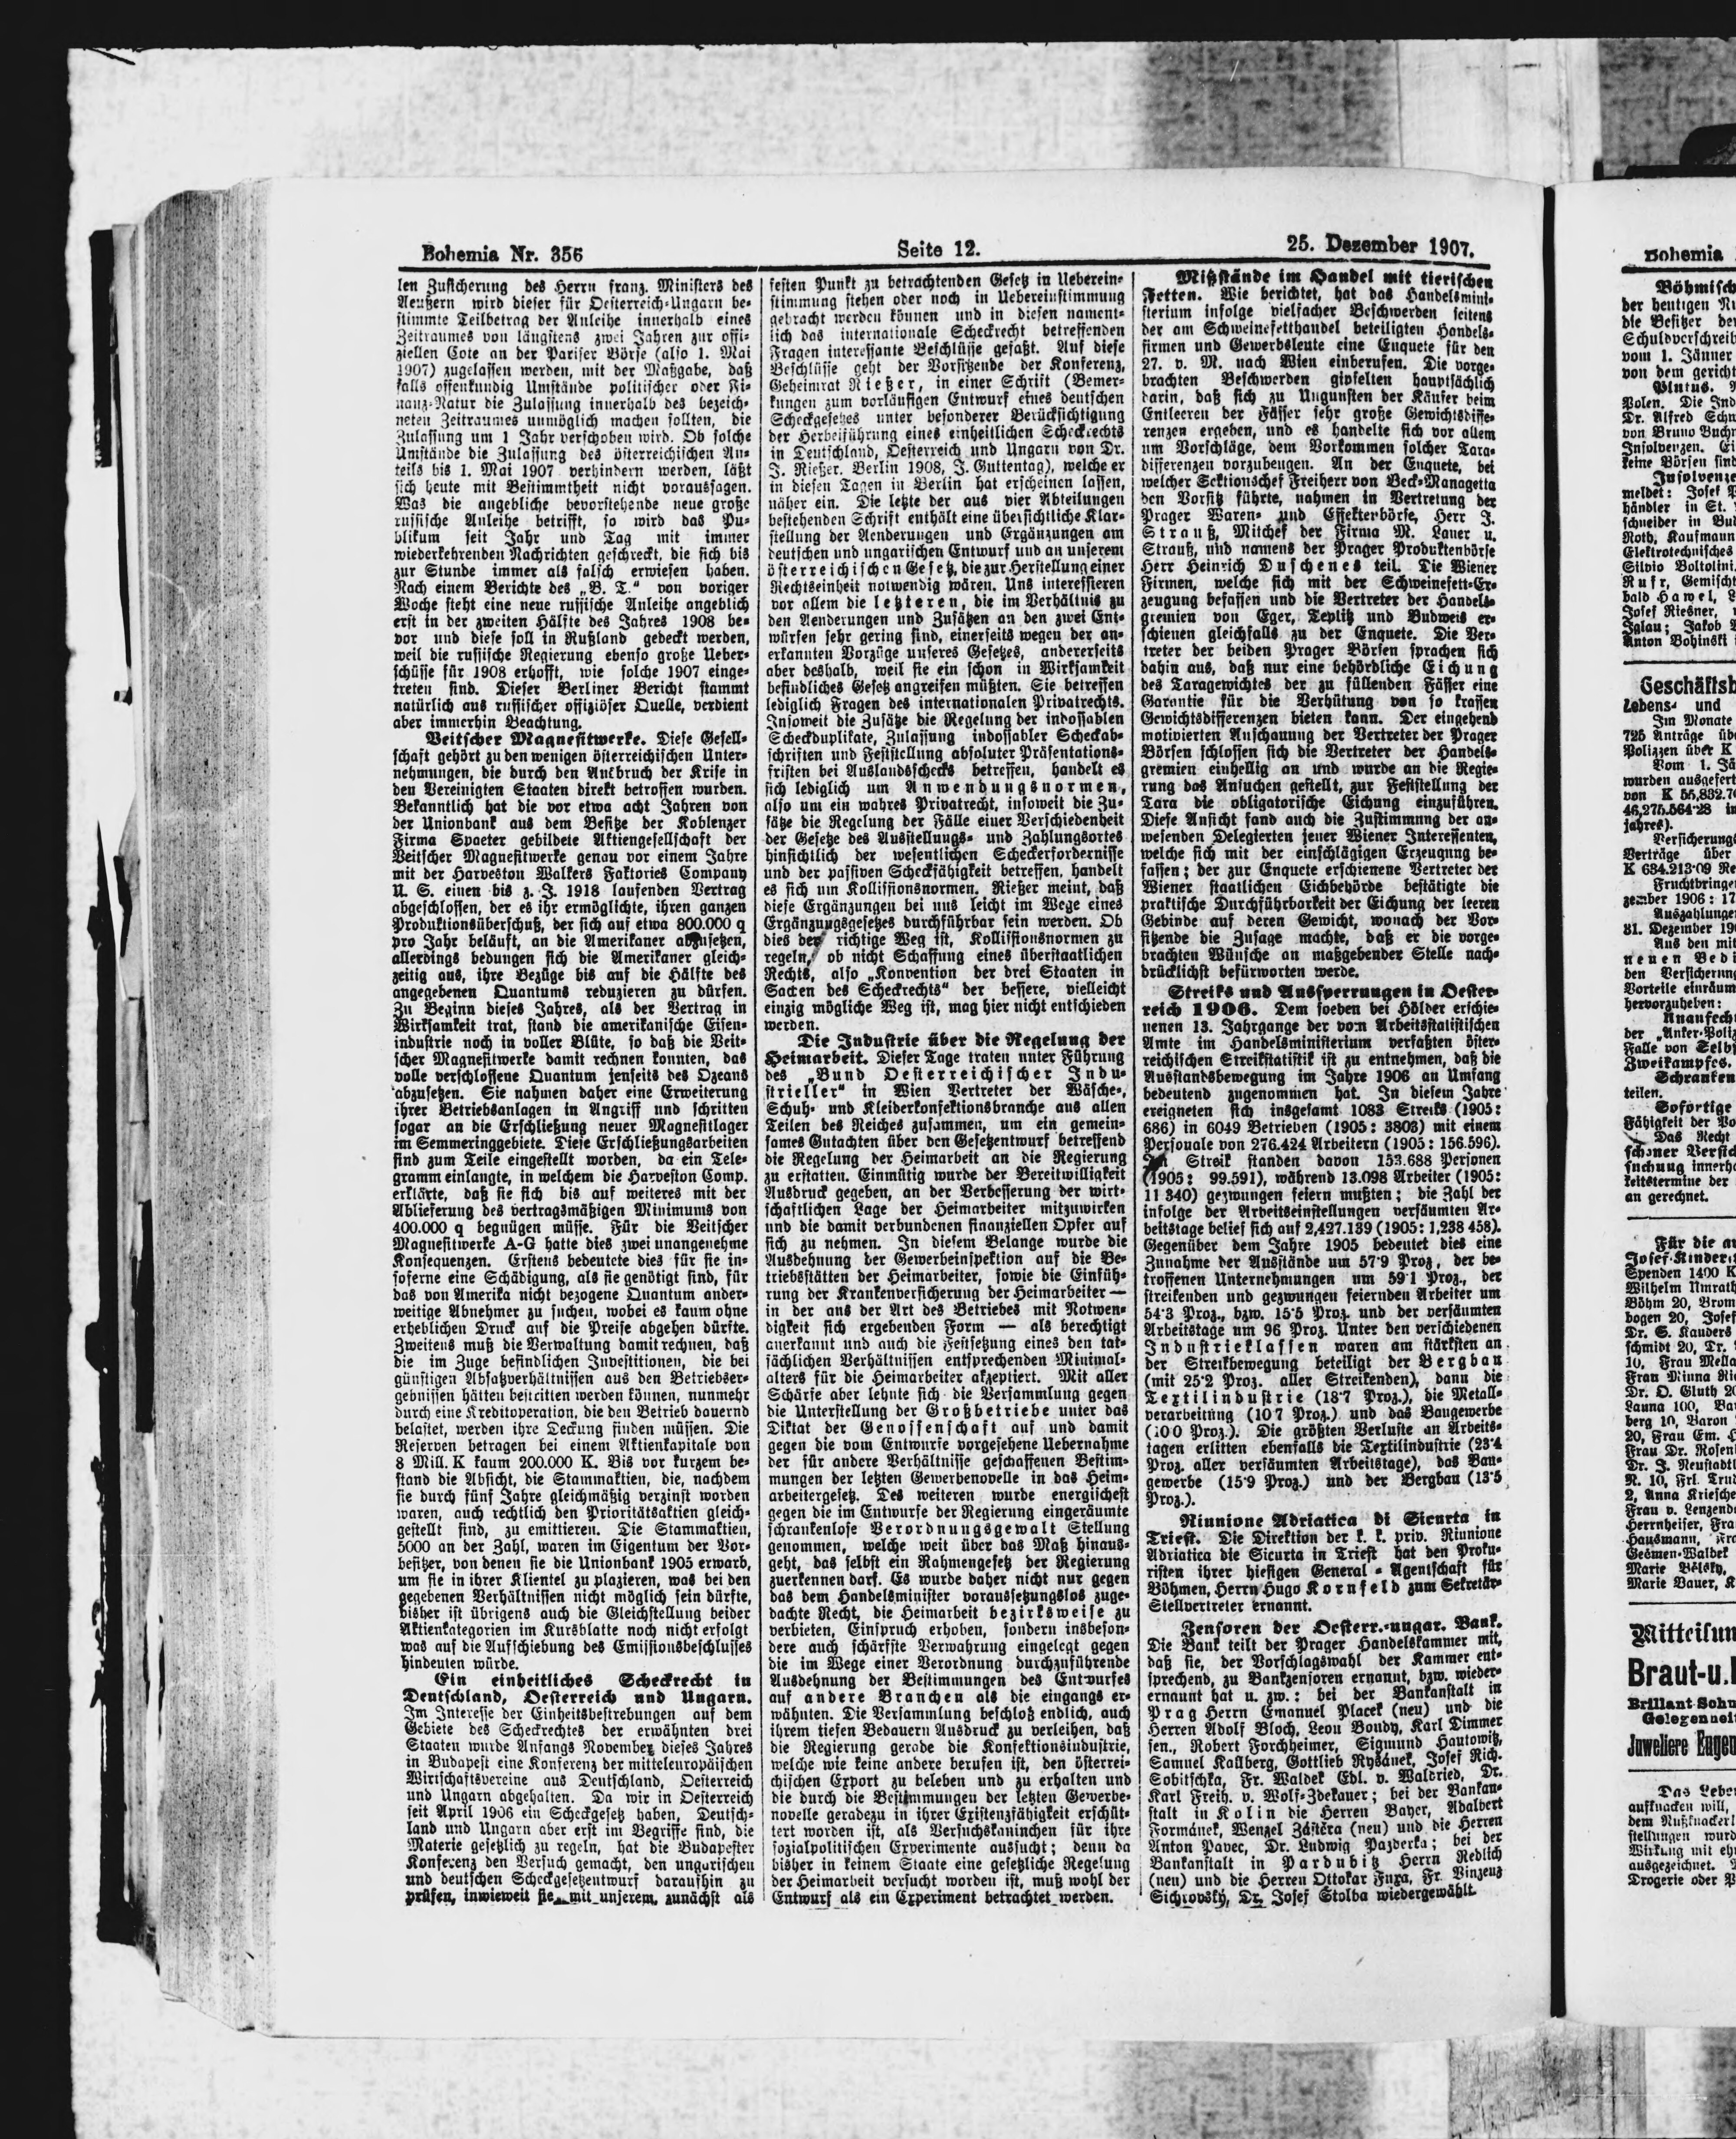 Bohemia Nr. 356
Seite 12.
25. Dezember 1907.
len Zusicherung des Herrn franz. Ministers des
Aeußern wird dieser für Oesterreich-Ungarn be-
stimmte Teilbetrag der Anleihe innerhalb eines
Zeitraumes von längstens zwei Jahren zur offi-
ziellen Cote an der Pariser Börse (also 1. Mai
1907) zugelassen werden, mit der Maßgabe, daß
falls offenkundig Umstände politischer oder Fi-
nanz-Natur die Zulassung innerhalb des bezeich-
neten Zeitraumes unmöglich machen sollten, die
Zulassung um 1 Jahr verschoben wird. Ob solche
Umstände die Zulassung des österreichischen An-
teils bis 1. Mai 1907 verhindern werden, läßt
sich heute mit Bestimmtheit nicht voraussagen.
Was die angebliche bevorstehende neue große
russische Anleihe betrifft, so wird das Pu-
blikum seit Jahr und Tag mit immer
wiederkehrenden Nachrichten geschreckt, die sich bis
zur Stunde immer als falsch erwiesen haben.
Nach einem Berichte des „B. T." von voriger
Woche steht eine neue russische Anleihe angeblich
erst in der zweiten Hälfte des Jahres 1908 be-
vor und diese soll in Rußland gedeckt werden,
weil die russische Regierung ebenso große Ueber-
schüsse für 1908 erhofft, wie solche 1907 einge-
treten sind. Dieser Berliner Bericht stammt
natürlich aus russischer offiziöser Quelle, verdient
aber immerhin Beachtung.
Veitscher Magnesitwerke. Diese Gesell-
schaft gehört zu den wenigen österreichischen Unter-
nehmungen, die durch den Ausbruch der Krise in
den Vereinigten Staaten direkt betroffen wurden.
Bekanntlich hat die vor etwa acht Jahren von
der Unionbank aus dem Besitze der Koblenzer
Firma Spaeter gebildete Aktiengesellschaft der
Veitscher Magnesitwerke genau vor einem Jahre
mit der Harveston Walkers Faktories Company
U. S. einen bis z. J. 1918 laufenden Vertrag
abgeschlossen, der es ihr ermöglichte, ihren ganzen
Produktionsüberschuß, der sich auf etwa 800.000 q
pro Jahr beläuft, an die Amerikaner abzusetzen,
allerdings bedungen sich die Amerikaner gleich-
zeitig aus, ihre Bezüge bis auf die Hälfte des
angegebenen Quantums reduzieren zu dürfen.
Zu Beginn dieses Jahres, als der Vertrag in
Wirksamkeit trat, stand die amerikanische Eisen-
industrie noch in voller Blüte, so daß die Veit-
scher Magnesitwerke damit rechnen konnten, das
volle verschlossene Quantum jenseits des Ozeans
abzusetzen. Sie nahmen daher eine Erweiterung
ihrer Betriebsanlagen in Angriff und schritten
sogar an die Erschließung neuer Magnesitlager
im Semmeringgebiete. Diese Erschließungsarbeiten
sind zum Teile eingestellt worden, da ein Tele-
gramm einlangte, in welchem die Harveston Comp.
erklärte, daß sie sich bis auf weiteres mit der
Ablieferung des vertragsmäßigen Minimums von
400.000 q begnügen müsse. Für die Veitscher
Magnesitwerke A-G hatte dies zwei unangenehme
Konsequenzen. Erstens bedeutete dies für sie in-
soferne eine Schädigung, als sie genötigt sind, für
das von Amerika nicht bezogene Quantum ander-
weitige Abnehmer zu suchen, wobei es kaum ohne
erheblichen Druck auf die Preise abgehen dürfte.
Zweitens muß die Verwaltung damit rechnen, daß
die im Zuge befindlichen Investitionen, die bei
günstigen Absatzverhältnissen aus den Betriebser-
gebnissen hätten bestritten werden können, nunmehr
durch eine Kreditoperation, die den Betrieb dauernd
belastet, werden ihre Deckung finden müssen. Die
Reserven betragen bei einem Aktienkapitale von
8 Mill. K kaum 200.000 K. Bis vor kurzem be-
stand die Absicht, die Stammaktien, die, nachdem
sie durch fünf Jahre gleichmäßig verzinst worden
waren, auch rechtlich den Prioritätsaktien gleich-
gestellt sind, zu emittieren. Die Stammaktien,
5000 an der Zahl, waren im Eigentum der Vor-
besitzer, von denen sie die Unionbank 1905 erwarb,
um sie in ihrer Klientel zu plazieren, was bei den
gegebenen Verhältnissen nicht möglich sein dürfte,
bisher ist übrigens auch die Gleichstellung beider
Aktienkategorien im Kursblatte noch nicht erfolgt
was auf die Aufschiebung des Emissionsbeschlusses
hindeuten würde.
Ein einheitliches Scheckrecht in
Deutschland, Oesterreich und Ungarn.
Im Interesse der Einheitsbestrebungen auf dem
Gebiete des Scheckrechtes der erwähnten drei
Staaten wurde Anfangs November dieses Jahres
in Budapest eine Konferenz der mitteleuropäischen
Wirtschaftsvereine aus Deutschland, Oesterreich
und Ungarn abgehalten. Da wir in Oesterreich
seit April 1906 ein Scheckgesetz haben, Deutsch-
land und Ungarn aber erst im Begriffe sind, die
Materie gesetzlich zu regeln, hat die Budapester
Konferenz den Versuch gemacht, den ungarischen
und deutschen Scheckgesetzentwurf daraufhin zu
prüfen, inwieweit sie mit unserem, zunächst als
festen Punkt zu betrachtenden Gesetz in Ueberein-
stimmung stehen oder noch in Uebereinstimmung
gebracht werden können und in diesen nament-
lich das internationale Scheckrecht betreffenden
Fragen interessante Beschlüsse gefaßt. Auf diese
Beschlüsse geht der Vorsitzende der Konferenz,
Geheimrat Rießer, in einer Schrift (Bemer-
kungen zum vorläufigen Entwurf eines deutschen
Scheckgesetzes unter besonderer Berücksichtigung
der Herbeiführung eines einheitlichen Scheckrechts
in Deutschland, Oesterreich und Ungarn von Dr.
J. Rießer. Berlin 1908, J. Guttentag), welche er
in diesen Tagen in Berlin hat erscheinen lassen,
näher ein. Die letzte der aus vier Abteilungen
bestehenden Schrift enthält eine übersichtliche Klar-
stellung der Aenderungen und Ergänzungen am
deutschen und ungarischen Entwurf und an unserem
österreichischen Gesetz, die zur Herstellung einer
Rechtseinheit notwendig wären. Uns interessieren
vor allem die letzteren, die im Verhältnis zu
den Aenderungen und Zusätzen an den zwei Ent-
würfen sehr gering sind, einerseits wegen der an-
erkannten Vorzüge unseres Gesetzes, andererseits
aber deshalb, weil sie ein schon in Wirksamkeit
befindliches Gesetz angreifen müßten. Sie betreffen
lediglich Fragen des internationalen Privatrechts.
Insoweit die Zusätze die Regelung der indossablen
Scheckduplikate, Zulassung indossabler Scheckab-
schriften und Feststellung absoluter Präsentations-
fristen bei Auslandsschecks betreffen, handelt es
sich lediglich um Anwendungsnormen,
also um ein wahres Privatrecht, insoweit die Zu-
sätze die Regelung der Fälle einer Verschiedenheit
der Gesetze des Ausstellungs- und Zahlungsortes
hinsichtlich der wesentlichen Scheckerfordernisse
und der passiven Scheckfähigkeit betreffen, handelt
es sich um Kollissionsnormen. Rießer meint, daß
diese Ergänzungen bei uns leicht im Wege eines
Ergänzungsgesetzes durchführbar sein werden. Ob
dies der richtige Weg ist, Kollissionsnormen zu
regeln, ob nicht Schaffung eines überstaatlichen
Rechts, also „Konvention der drei Staaten in
Sachen des Scheckrechts" der bessere, vielleicht
einzig mögliche Weg ist, mag hier nicht entschieden
werden.
Die Industrie über die Regelung der
Heimarbeit. Dieser Tage traten unter Führung
des „Bund Oesterreichischer Indu-
strieller" in Wien Vertreter der Wäsche-,
Schuh- und Kleiderkonfektionsbranche aus allen
Teilen des Reiches zusammen, um ein gemein-
sames Gutachten über den Gesetzentwurf betreffend
die Regelung der Heimarbeit an die Regierung
zu erstatten. Einmütig wurde der Bereitwilligkeit
Ausdruck gegeben, an der Verbesserung der wirt-
schaftlichen Lage der Heimarbeiter mitzuwirken
und die damit verbundenen finanziellen Opfer auf
sich zu nehmen. In diesem Belange wurde die
Ausdehnung der Gewerbeinspektion auf die Be-
triebsstätten der Heimarbeiter, sowie die Einfüh-
rung der Krankenversicherung der Heimarbeiter —
in der aus der Art des Betriebes mit Notwen-
digkeit sich ergebenden Form — als berechtigt
anerkannt und auch die Festsetzung eines den tat-
sächlichen Verhältnissen entsprechenden Minimal-
alters für die Heimarbeiter akzeptiert. Mit aller
Schärfe aber lehnte sich die Versammlung gegen
die Unterstellung der Großbetriebe unter das
Diktat der Genossenschaft auf und damit
gegen die vom Entwurfe vorgesehene Uebernahme
der für andere Verhältnisse geschaffenen Bestim-
mungen der letzten Gewerbenovelle in das Heim-
arbeitergesetz. Des weiteren wurde energischest
gegen die im Entwurfe der Regierung eingeräumte
schrankenlose Verordnungsgewalt Stellung
genommen, welche weit über das Maß hinaus-
geht, das selbst ein Rahmengesetz der Regierung
zuerkennen darf. Es wurde daher nicht nur gegen
das dem Handelsminister voraussetzungslos zuge-
dachte Recht, die Heimarbeit bezirksweise zu
verbieten, Einspruch erhoben, sondern insbeson-
dere auch schärfste Verwahrung eingelegt gegen
die im Wege einer Verordnung durchzuführende
Ausdehnung der Bestimmungen des Entwurfes
auf andere Branchen als die eingangs er-
wähnten. Die Versammlung beschloß endlich, auch
ihrem tiefen Bedauern Ausdruck zu verleihen, daß
die Regierung gerade die Konfektionsindustrie,
welche wie keine andere berufen ist, den österrei-
chischen Export zu beleben und zu erhalten und
die durch die Bestimmungen der letzten Gewerbe-
novelle geradezu in ihrer Existenzfähigkeit erschüt-
tert worden ist, als Versuchskaninchen für ihre
sozialpolitischen Experimente aussucht; denn da
bisher in keinem Staate eine gesetzliche Regelung
der Heimarbeit versucht worden ist, muß wohl der
Entwurf als ein Experiment betrachtet werden.
Mißstände im Handel mit tierischen
Fetten. Wie berichtet, hat das Handelsmini-
sterium infolge vielfacher Beschwerden seitens
der am Schweinefetthandel beteiligten Handels-
firmen und Gewerbsleute eine Enquete für den
27. v. M. nach Wien einberufen. Die vorge-
brachten Beschwerden gipfelten hauptsächlich
darin, daß sich zu Ungunsten der Käufer beim
Entleeren der Fässer sehr große Gewichtsdiffe-
renzen ergeben, und es handelte sich vor allem
um Vorschläge, dem Vorkommen solcher Tara-
differenzen vorzubeugen. An der Enquete, bei
welcher Sektionschef Freiherr von Beck-Managetta
den Vorsitz führte, nahmen in Vertretung der
Prager Waren- und Effektenbörse, Herr J.
Strauß, Mitchef der Firma M. Lauer u.
Strauß, und namens der Prager Produktenbörse
Herr Heinrich Duschenes teil. Die Wiener
Firmen, welche sich mit der Schweinefett-Er-
zeugung befassen und die Vertreter der Handels-
gremien von Eger, Teplitz und Budweis er-
schienen gleichfalls zu der Enquete. Die Ver-
treter der beiden Prager Börsen sprachen sich
dahin aus, daß nur eine behördliche Eichung
des Taragewichtes der zu füllenden Fässer eine
Garantie für die Verhütung von so krassen
Gewichtsdifferenzen bieten kann. Der eingehend
motivierten Anschauung der Vertreter der Prager
Börsen schlossen sich die Vertreter der Handels-
gremien einhellig an und wurde an die Regie-
rung das Ansuchen gestellt, zur Feststellung der
Tara die obligatorische Eichung einzuführen.
Diese Ansicht fand auch die Zustimmung der an-
wesenden Delegierten jener Wiener Interessenten,
welche sich mit der einschlägigen Erzeugung be-
fassen; der zur Enquete erschienene Vertreter der
Wiener staatlichen Eichbehörde bestätigte die
praktische Durchführbarkeit der Eichung der leeren
Gebinde auf deren Gewicht, wonach der Vor-
sitzende die Zusage machte, daß er die vorge-
brachten Wünsche an maßgebender Stelle nach-
drücklichst befürworten werde.
Streiks und Aussperrungen in Oester-
reich 1906. Dem soeben bei Hölder erschie-
nenen 13. Jahrgange der vom Arbeitsstatistischen
Amte im Handelsministerium verfaßten öster-
reichischen Streikstatistik ist zu entnehmen, daß die
Ausstandsbewegung im Jahre 1906 an Umfang
bedeutend zugenommen hat. In diesem Jahre
ereigneten sich insgesamt 1083 Streiks (1905:
686) in 6049 Betrieben (1905: 3803) mit einem
Personale von 276.424 Arbeitern (1905: 156.596).
Im Streik standen davon 153.688 Personen
(1905: 99.591), während 13.098 Arbeiter (1905:
11 340) gezwungen feiern mußten; die Zahl der
infolge der Arbeitseinstellungen versäumten Ar-
beitstage belief sich auf 2,427.139 (1905: 1,238 458).
Gegenüber dem Jahre 1905 bedeutet dies eine
Zunahme der Ausstände um 57·9 Proz, der be-
troffenen Unternehmungen um 59·1 Proz., der
streikenden und gezwungen feiernden Arbeiter um
54·3 Proz., bzw. 15·5 Proz. und der versäumten
Arbeitstage um 96 Proz. Unter den verschiedenen
Industrieklassen waren am stärksten an
der Streikbewegung beteiligt der Bergbau
(mit 25·2 Proz. aller Streikenden), dann die
Textilindustrie (18·7 Proz.), die Metall-
verarbeitung (10 7 Proz.) und das Baugewerbe
(10 0 Proz.). Die größten Verluste an Arbeits-
tagen erlitten ebenfalls die Textilindustrie (23·4
Proz. aller versäumten Arbeitstage), das Bau-
gewerbe (15·9 Proz.) und der Bergbau (13·5
Proz.).
Riunione Adriatica di Sicurta in
Triest. Die Direktion der k. k. priv. Riunione
Adriatica die Sicurta in Triest hat den Proku-
risten ihrer hiesigen General-Agentschaft für
Böhmen, Herrn Hugo Kornfeld zum Sekretär-
Stellvertreter ernannt.
Zensoren der Oesterr.-ungar. Bank.
Die Bank teilt der Prager Handelskammer mit,
daß sie, der Vorschlagswahl der Kammer ent-
sprechend, zu Bankzensoren ernannt, bzw. wieder-
ernannt hat u. zw.: bei der Bankanstalt in
Prag Herrn Emanuel Placek (neu) und die
Herren Adolf Bloch, Leon Bondy, Karl Dimmer
sen., Robert Forchheimer, Sigmund Hautowitz,
Samuel Kallberg, Gottlieb Rysánek, Josef Rich.
Sobitschka, Fr. Waldek Edl. v. Waldried, Dr.
Karl Freih. v. Wolf-Zdekauer; bei der Bankan-
stalt in Kolin die Herren Bayer, Adalbert
Formánek, Wenzel Zástěra (neu) und die Herren
Anton Pavec, Dr. Ludwig Pazderka; bei der
Bankanstalt in Pardubitz Herrn Redlich
(neu) und die Herren Ottokar Fuxa, Fr. Vinzenz
Sichrovský, Dr. Josef Stolba wiedergewählt.
Bohemia
Böhmisch
der heutigen
die Besitzer
Schuldverschreib
vom 1. Jänner
von dem gericht
Plutus.
Polen. Die Ind
Dr. Alfred
von Bruno
Insolvenzen.
keine Börsen
Insolvenze
meldet: Josef
händler in St.
schneider in
Roth, Kaufmann
Elektrotechnisches
Silvio Boltolini,
Rufr, Gemischt
bald Hawel,
Josef Riesner,
Iglau; Jakob
Anton Bohinski
Geschäftsb
Lebens- und
Im Monate
725 Anträge
Polizzen über K
Vom 1.
wurden ausgefert
von K 55,832.7
46,275.564·28
jahres).
Versicherung
Verträge über
K 634.213·09
Fruchtbringe
zember 1906: 17
Auszahlunge
31. Dezember 19
Aus den mit
neuen Bedi
den Versicherung
Vorteile einräum
hervorzuheben:
Unanfecht
der „Anker-Poliz
Falle von Selbs
Zweikampfes.
Schranken
teilen.
Sofortige
Fähigkeit der
Das Recht
schöner
suchung innerh
keitstermine der
an gerechnet.
Für die
Josef-Kinder-
Spenden 1400 K
Wilhelm Umrath
Böhm 20, Brom
bogen 20, Josef
Dr. S. Kauders
schmidt 20, Dr.
10, Frau Mella
Frau Minna
Dr. O. Gluth 20
Launa 100,
berg 10, Baron
20, Frau Em.
Frau Dr. Rosen
Dr. J. Neustadtl
N. 10, Frl. Trud
2, Anna Kriesche
Frau v. Lenzend
Herrnheiser, Fra
Hausmann,
Gečmen-Waldek
Marie Bělsky,
Marie Bauer, K
Mitteilun
Braut-u.
Brillant-Schm
Gelegenheit
Juweliere Eugen
Das Lebe
aufknacken will,
dem Nußknackerl
stellungen wurd
Wirkung mit
ausgezeichnet.
Drogerie oder